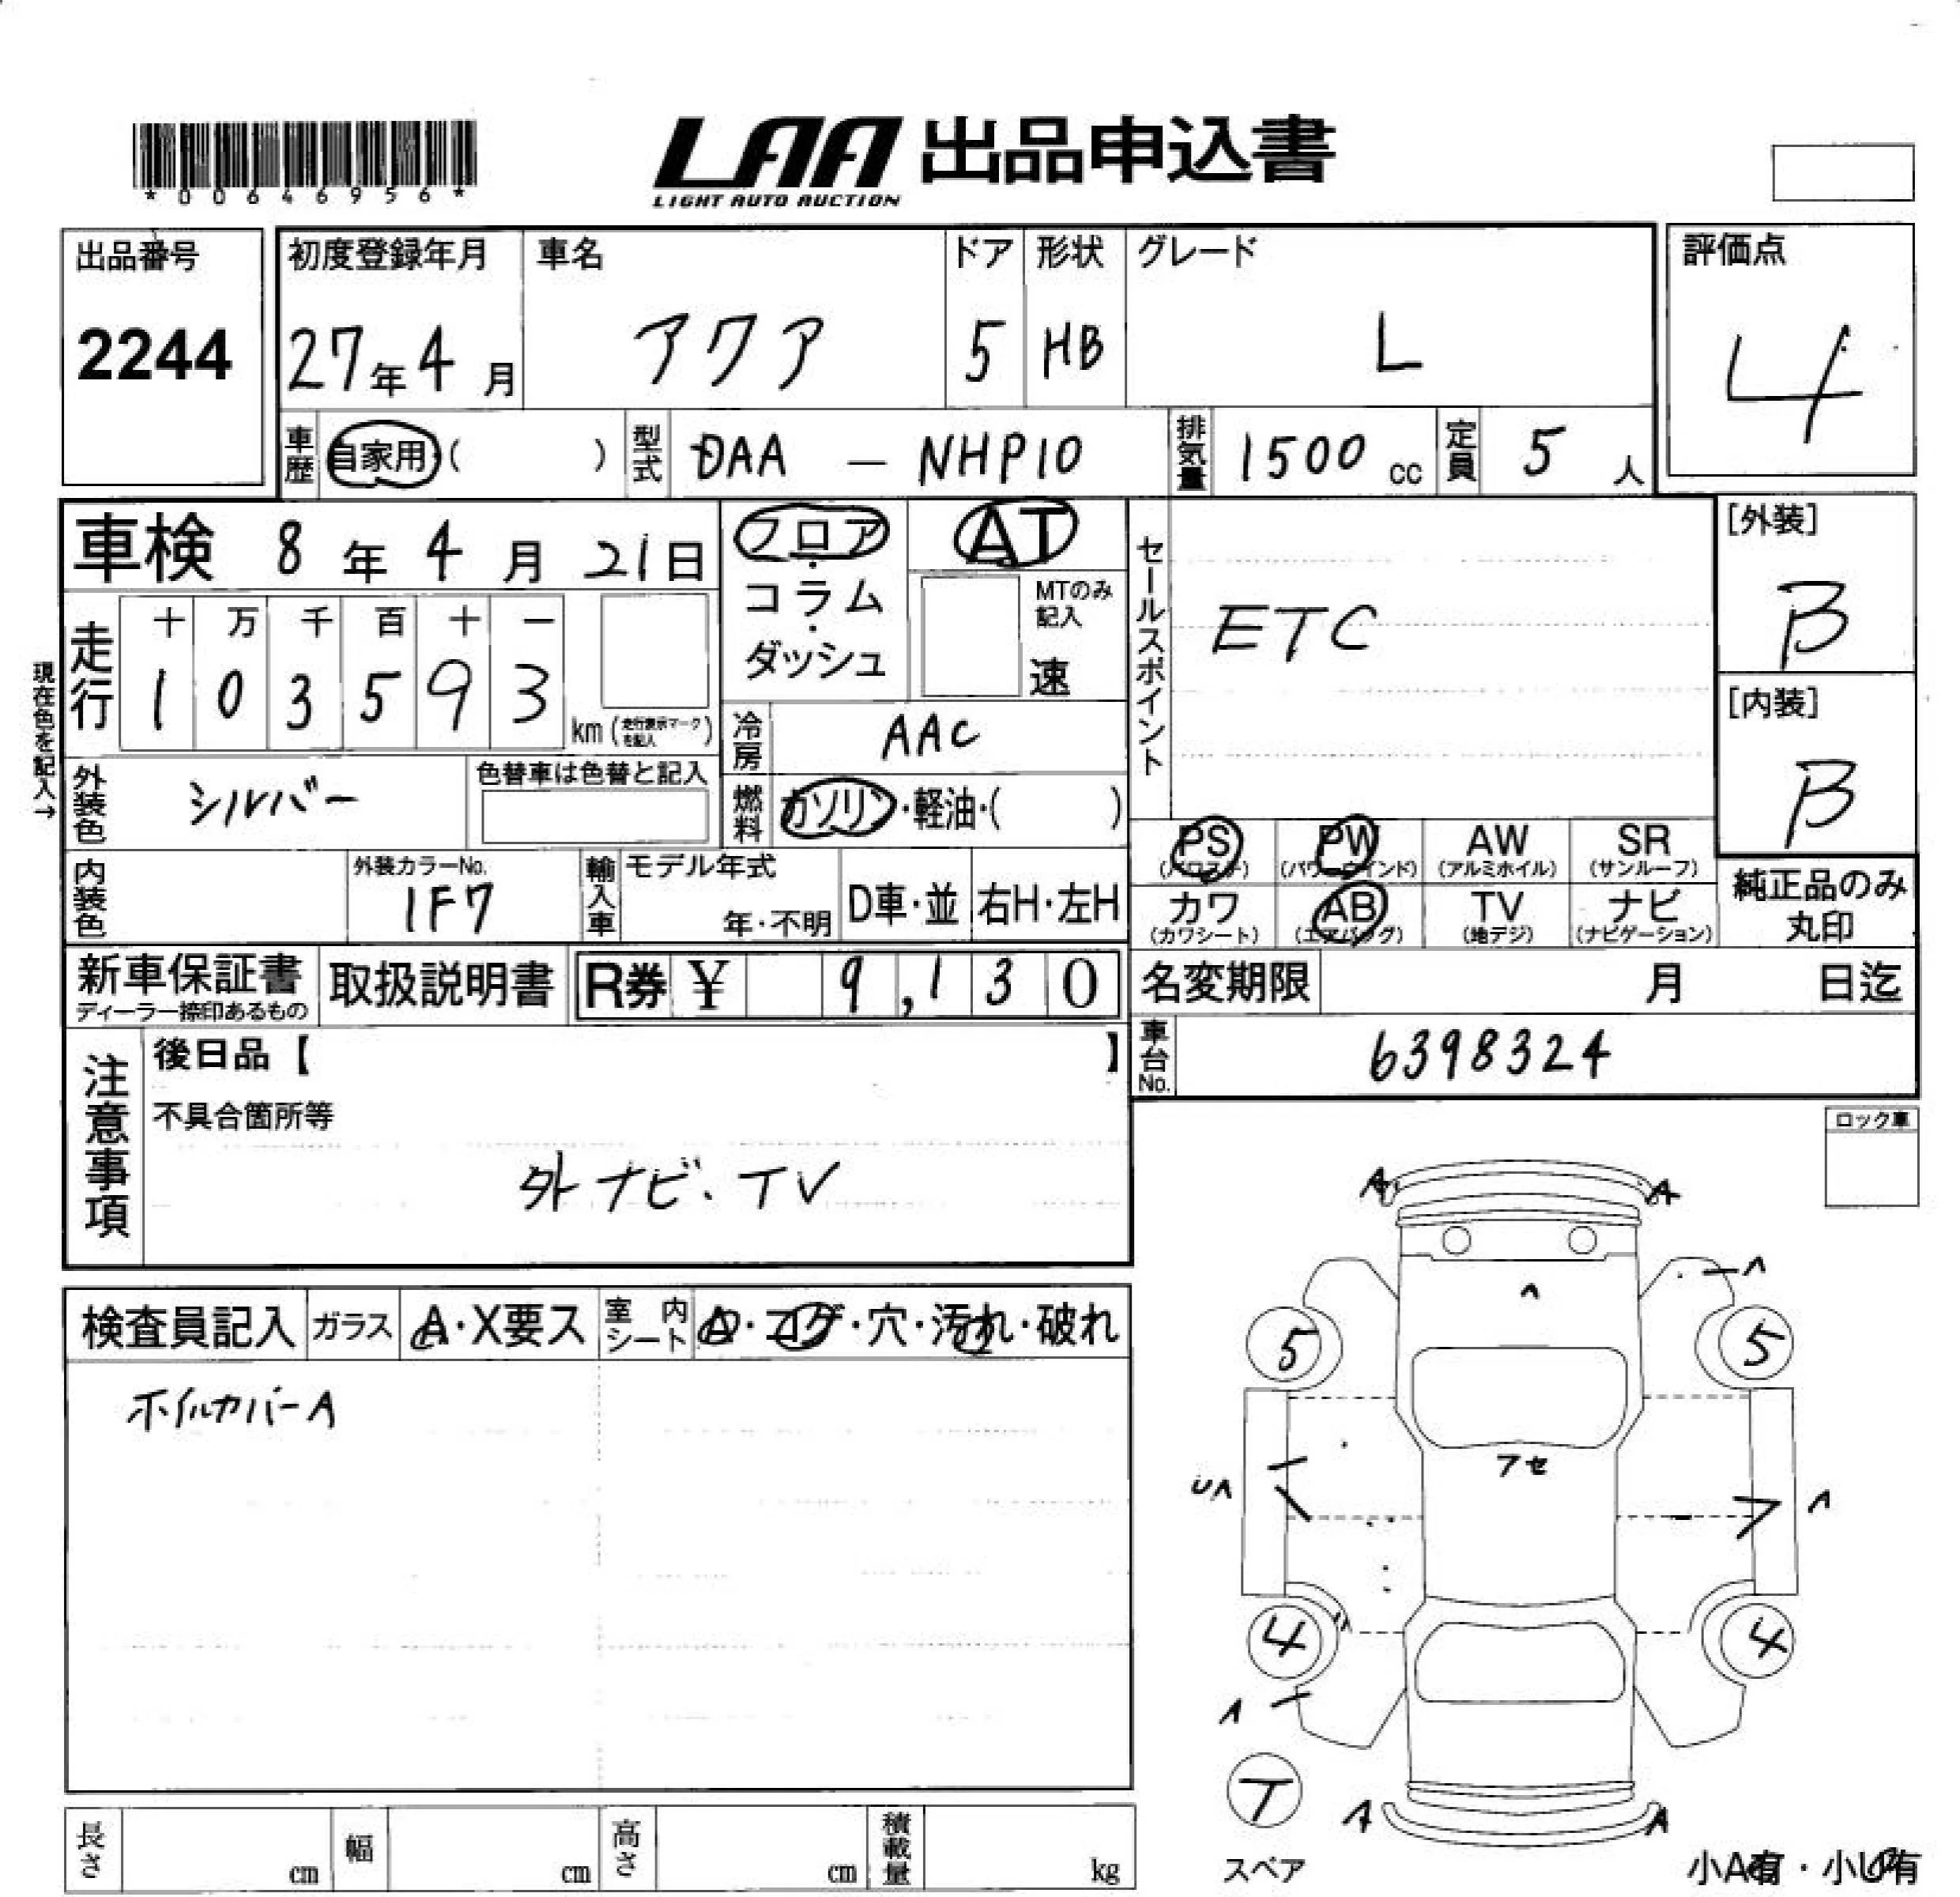 *00646956*
LAA 出品申込書
LIGHT AUTO AUCTION
出品番号
2244
初度登録年月
27年4月
車名
アクア
ドア
5
形状
HB
グレード
L
評価点
4
車歴
自家用・( )
型式
DAA - NHP10
排気量
1500 cc
定員
5 人
車検 8年4月21日
フロア・コラム・ダッシュ
AT
MTのみ記入
速
セールスポイント
ETC
[外装]
B
[内装]
B
現在色を記入→
走行
十 万 千 百 十 一
1 0 3 5 9 3
km (走行表示マークを記入)
冷房
AAC
外装色
シルバー
色替車は色替と記入
燃料
ガソリン・軽油・( )
内装色
外装カラーNo.
1F7
輸入車
モデル年式
年・不明
D車・並
右H・左H
PS (パワステ)
PW (パワーウインド)
AW (アルミホイル)
SR (サンルーフ)
カワ (カワシート)
AB (エアバッグ)
TV (地デジ)
ナビ (ナビゲーション)
純正品のみ丸印
新車保証書
ディーラー捺印あるもの
取扱説明書
R券 ¥ 9,130
名変期限 月 日迄
車台No.
6398324
注意事項
後日品【 】
不具合箇所等
外ナビ.TV
ロック車
検査員記入
ガラス
A・X要ス
室内シート
A・コゲ・穴・汚れ・破れ
ホイルカバーA
A A
A
A
5 5
アセ
UA
A
4 4
A
T
スペア
A A
小A有・小U有
長さ cm
幅 cm
高さ cm
積載量 kg